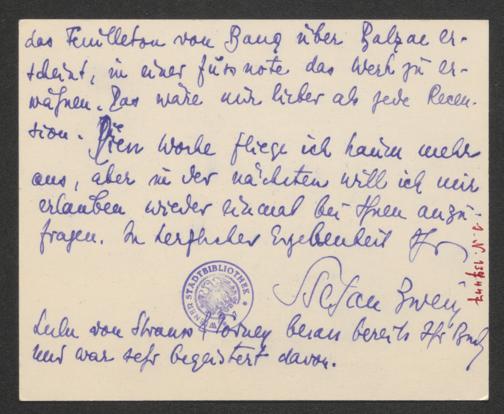 das Feuilleton von Bang über Balzac er-
scheint, in einer Fussnote das Werk zu er-
wähnen. Das wäre mir lieber als jede Recen-
sion. Diese Woche fliege ich kaum mehr
aus, aber in der nächsten will ich mir
erlauben wieder einmal bei Ihnen anzu-
fragen. In herzlicher Ergebenheit Ihr
Stefan Zweig
WIENER STADTBIBLIOTHEK
Lulu von Strauss Torney besass bereits Ihr Buch
und war sehr begeistert davon.